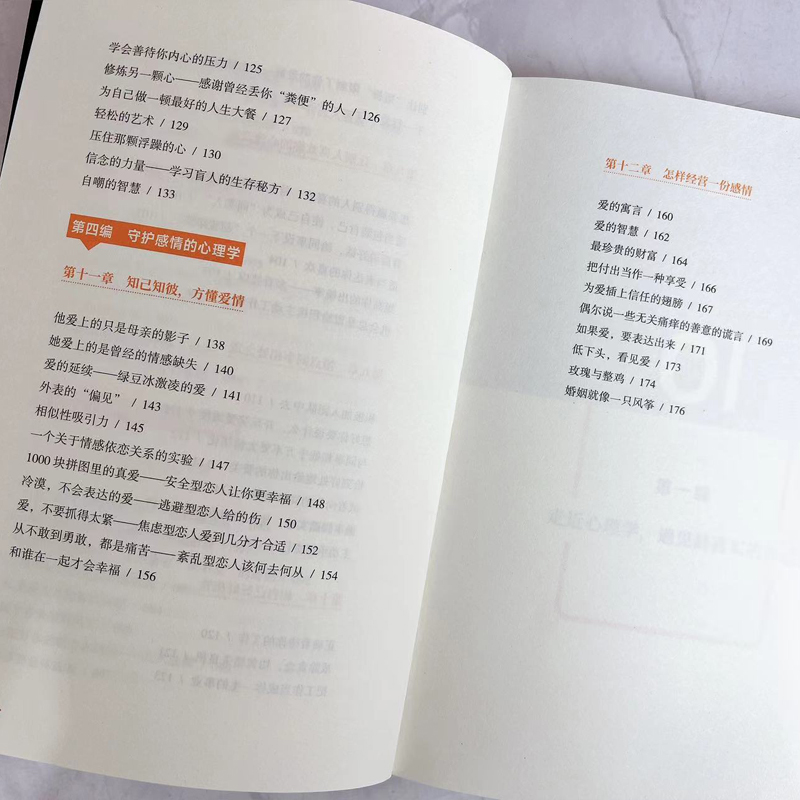 学会善待你内心的压力 / 125
修炼另一颗心——感谢曾经丢你“粪便”的人 / 126
为自己做一顿最好的人生大餐 / 127
轻松的艺术 / 129
压住那颗浮躁的心 / 130
信念的力量——学习盲人的生存秘方 / 132
自嘲的智慧 / 133
第四编 守护感情的心理学
第十一章 知己知彼，方懂爱情
他爱上的只是母亲的影子 / 138
她爱上的是曾经的情感缺失 / 140
爱的延续——绿豆冰激凌的爱 / 141
外表的“偏见” / 143
相似性吸引力 / 145
一个关于情感依恋关系的实验 / 147
1000 块拼图里的真爱——安全型恋人让你更幸福 / 148
冷漠，不会表达的爱——逃避型恋人给的伤 / 150
爱，不要抓得太紧——焦虑型恋人爱到几分才合适 / 152
从不敢到勇敢，都是痛苦——紊乱型恋人该何去何从 / 154
和谁在一起才会幸福 / 156
第十二章 怎样经营一份感情
爱的寓言 / 160
爱的智慧 / 162
最珍贵的财富 / 164
把付出当作一种享受 / 166
为爱插上信任的翅膀 / 167
偶尔说一些无关痛痒的善意的谎言 / 169
如果爱，要表达出来 / 171
低下头，看见爱 / 173
玫瑰与整鸡 / 174
婚姻就像一只风筝 / 176